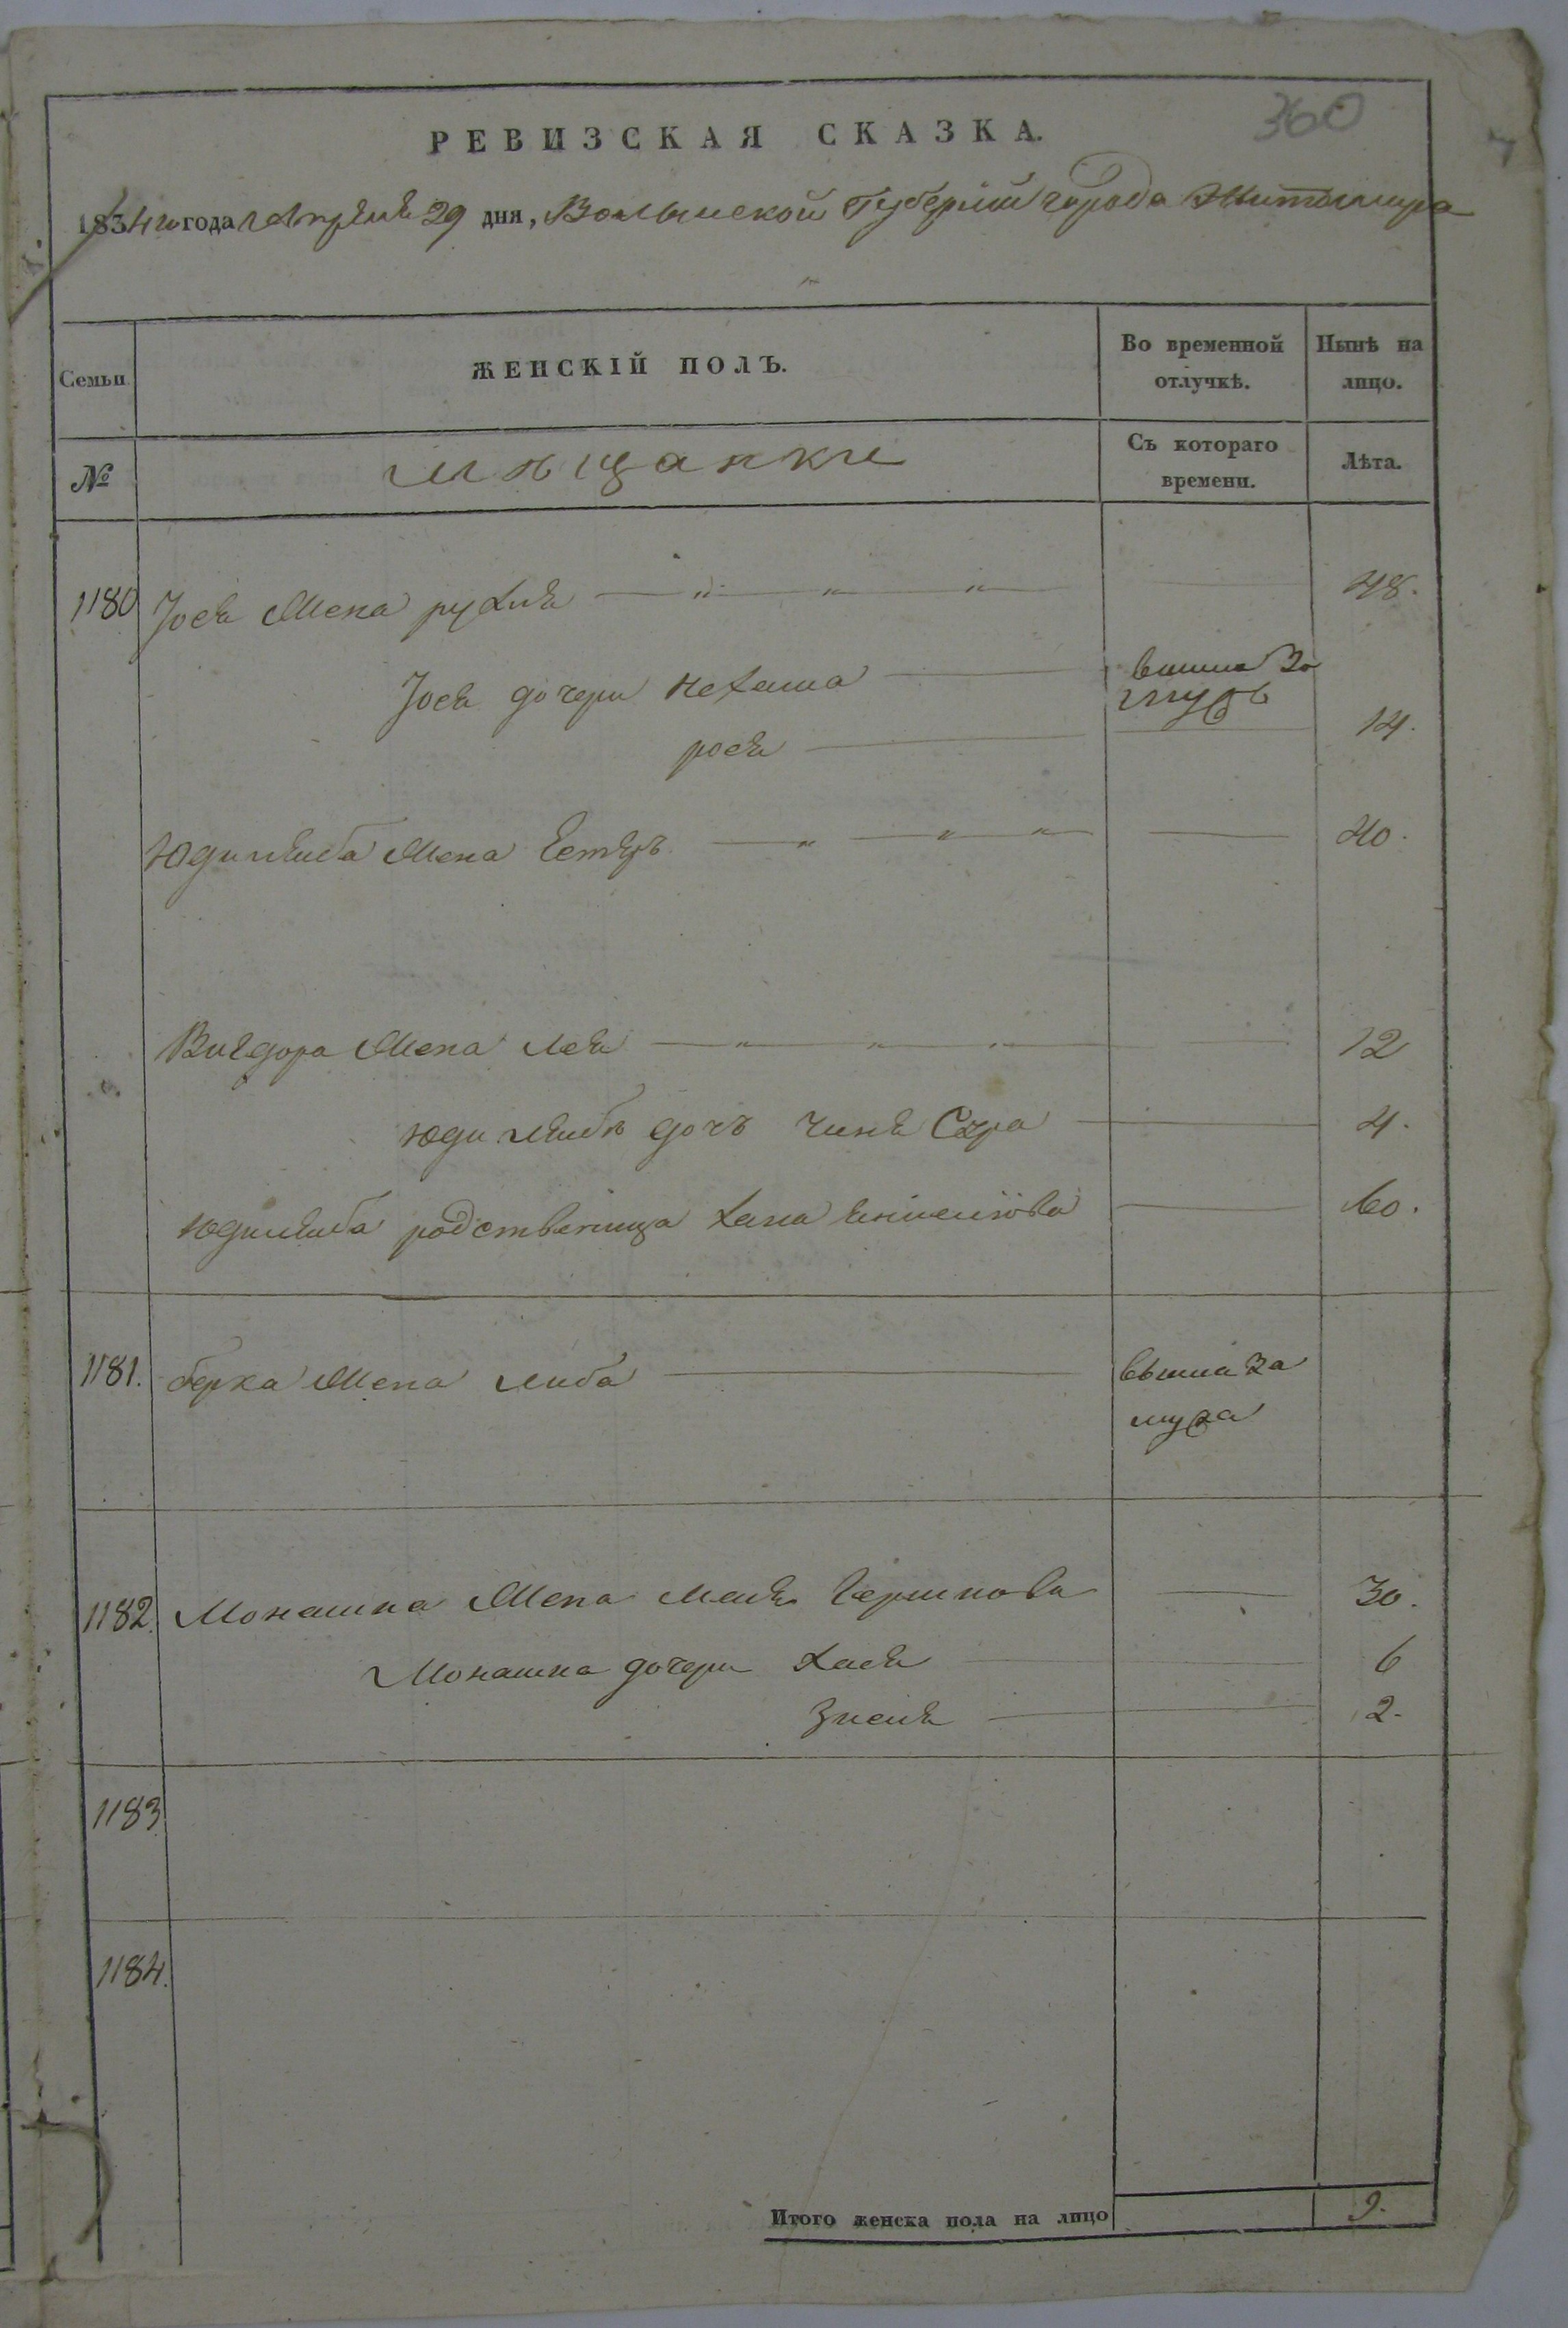 360
РЕВИЗСКАЯ СКАЗКА.
1834го года Апреля 29 дня, Волынской Губерніи города Житомира
Семьи
ЖЕНСКІЙ ПОЛЪ.
Во временной отлучкѣ.
Нынѣ на лицо.
№
мѣщанки
Съ котораго времени.
Лѣта.
1180 Іося Жена рухля 48.
Іося дочери Нехама вышла За мужъ
рося 14.
Юдилейба Жена Естеръ 40.
Вигдора Жена Лея 12
Юдилейбы дочъ Чиня Сура 4.
Юдилейба родственица Хана 60.
1181. берка Жена Либа вышла За мужа
1182. Монашка Жена Маля Гершкова 30.
Монашка дочери Хася 6
Зиеля 2.
1183
1184.
Итого женска пола на лицо 9.